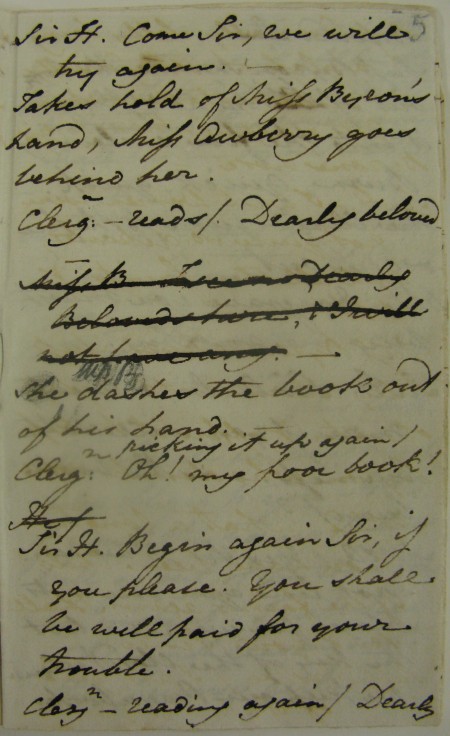 5
Sir H. Come Sir, we will
try again. —
Takes hold of Miss Byron's
hand, Miss Awberry goes
behind her.
Clergn: – reads/. Dearly beloved
Miss B I see no Dearly
Beloveds here, & I will
not have any. —
Miss B
she dashes the book out
of his hand.
picking it up again/
Clergn: Oh! my poor book!
Sir H. Begin again Sir, if
you please. You shall
be well paid for your
trouble.
Clergn – reading again/ Dearly